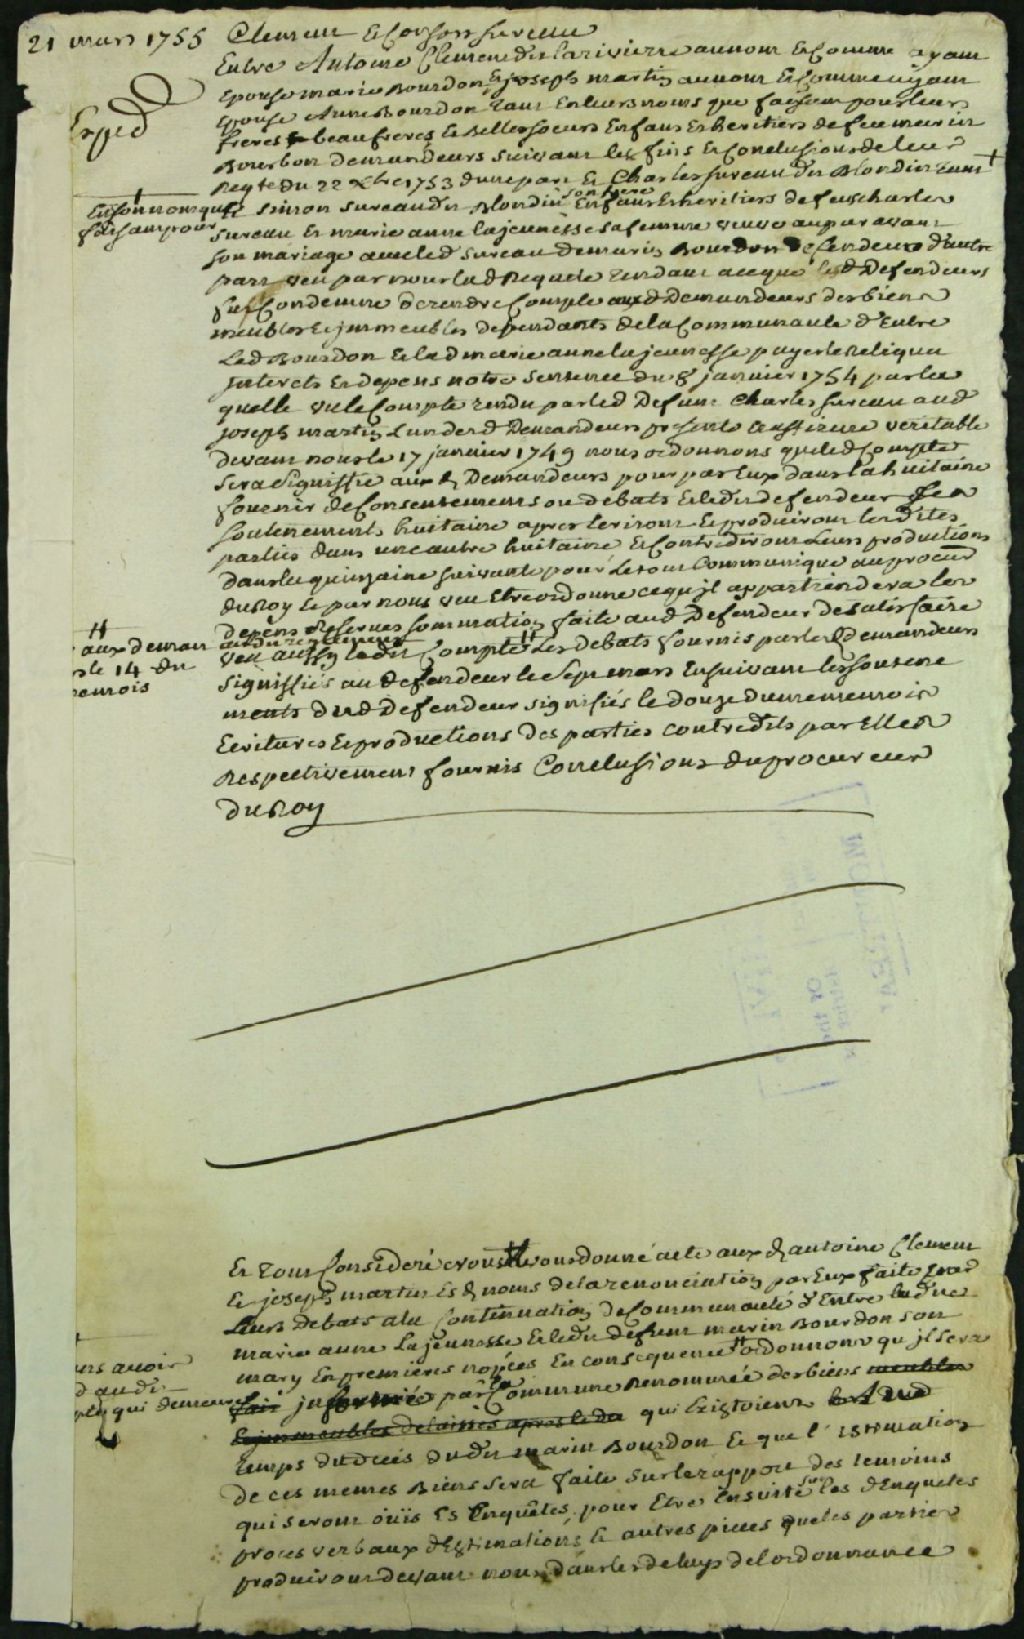 21 mars 1755 Clement Et Consors Sureau
Entre Antoine Clement dit larivierre au nom Et Comme ayant
Expéd
Epousé marie Bourdon, Et joseph martin au nom Et Comme ayant
Epousé Anne Bourdon tant En leurs noms que faisant pour leurs
freres beaufreres Et Belles soeurs Enfans Et heritiers de feu marin
Bourbon demandeurs suivant les fins Et Conclusions de leur
Reqte du 22 Xbre 1753 d'une part Et Charles Sureau dit Blondin tant
En son nom que
faisant pour
Simon Sureau dit Blondin son frere Enfans Et heritiers de feu Charles
Sureau Et marie anne lajeunesse sa femme veuve auparavant
son mariage avec led Sureau de marin Bourdon defendeurs d'autre
part veu par nous lad Requete tendant a ce que lesd Defendeurs
fus Condemné de rendre Compte auxd Demandeurs des biens
meubles Et immeubles dependants de la Communauté d'Entre
Led Bourdon Et lad marie anne lajeunesse payer le Reliqua
Interets Et depens notre Sentence du 8 janvier 1754 par la
quelle veu le Compte rendu par led Defunt Charles Sureau aud
joseph martin L'un desd Demandeurs presenté Et affirmé veritable
devant nous le 17 janvier 1749 nous ordonnons que led Compte
sera signiffié auxd Demandeurs pour par Eux dans la huitaine
fournir de Consentements ou debats Et led defendeur Ses
soutenements huitaine apres Ecriront Et produiront lesdites
parties dans une autre huitaine Et Contrediront Leurs productions
dans la quinzaine suivante pour Le tout Communiqué au procur
du Roy Et par nous veu Etre ordonné ce qu'il appartiendera les
depens Reservés sommation faite aud Defendeur de satisfaire
aud reglement
aux deman
le 14 du
mois
Veu aussy ledit Compte Les debats fournis par lesd demandeurs
signiffiés au defendeur le Sept mars Ensuivant les soutene
ments dud Defendeur signifiés le douze du meme mois
Ecritures Et productions des parties contredits par Elles
Respectivement fournis Conclusions du procureur
du Roy
Et tout Consideré nous avons donné acte auxd antoine Clement
Et joseph martin Esd noms de la renonciation par Eux faite par
Leurs debats a la Continuation de Communauté d'Entre ladite
marie anne Lajeunesse Et ledit defunt marin Bourdon son
mary En premieres nopces En consequence ordonnons qu'il sera
avoir
qui demeure
fait informé par la Commune Renommée des biens meubles
Et immeubles delaissés apres le qui Existoient
temps du deces dudit marin Bourdon Et que l'Estimation
de ces memes Biens sera faite sur le rapport des temoins
qui seront oüis Es Enquêtes, pour Etre Ensuite sur les d Enquetes
proces verbaux d'Estimations Et autres pieces que les parties
produiront devant nous dans les delays de l'ordonnance